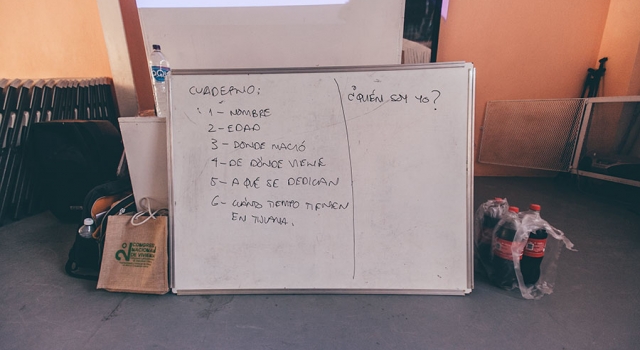 CUADERNO:
1 - NOMBRE
2 - EDAD
3 - DONDE NACIÓ
4 - DE DÓNDE VIENE
5 - A QUÉ SE DEDICAN
6 - CUÁNTO TIEMPO TIENEN
EN TIJUANA.
¿QUIÉN SOY YO?
2º
CONGRESO
NACIONAL
DE VIVIENDA